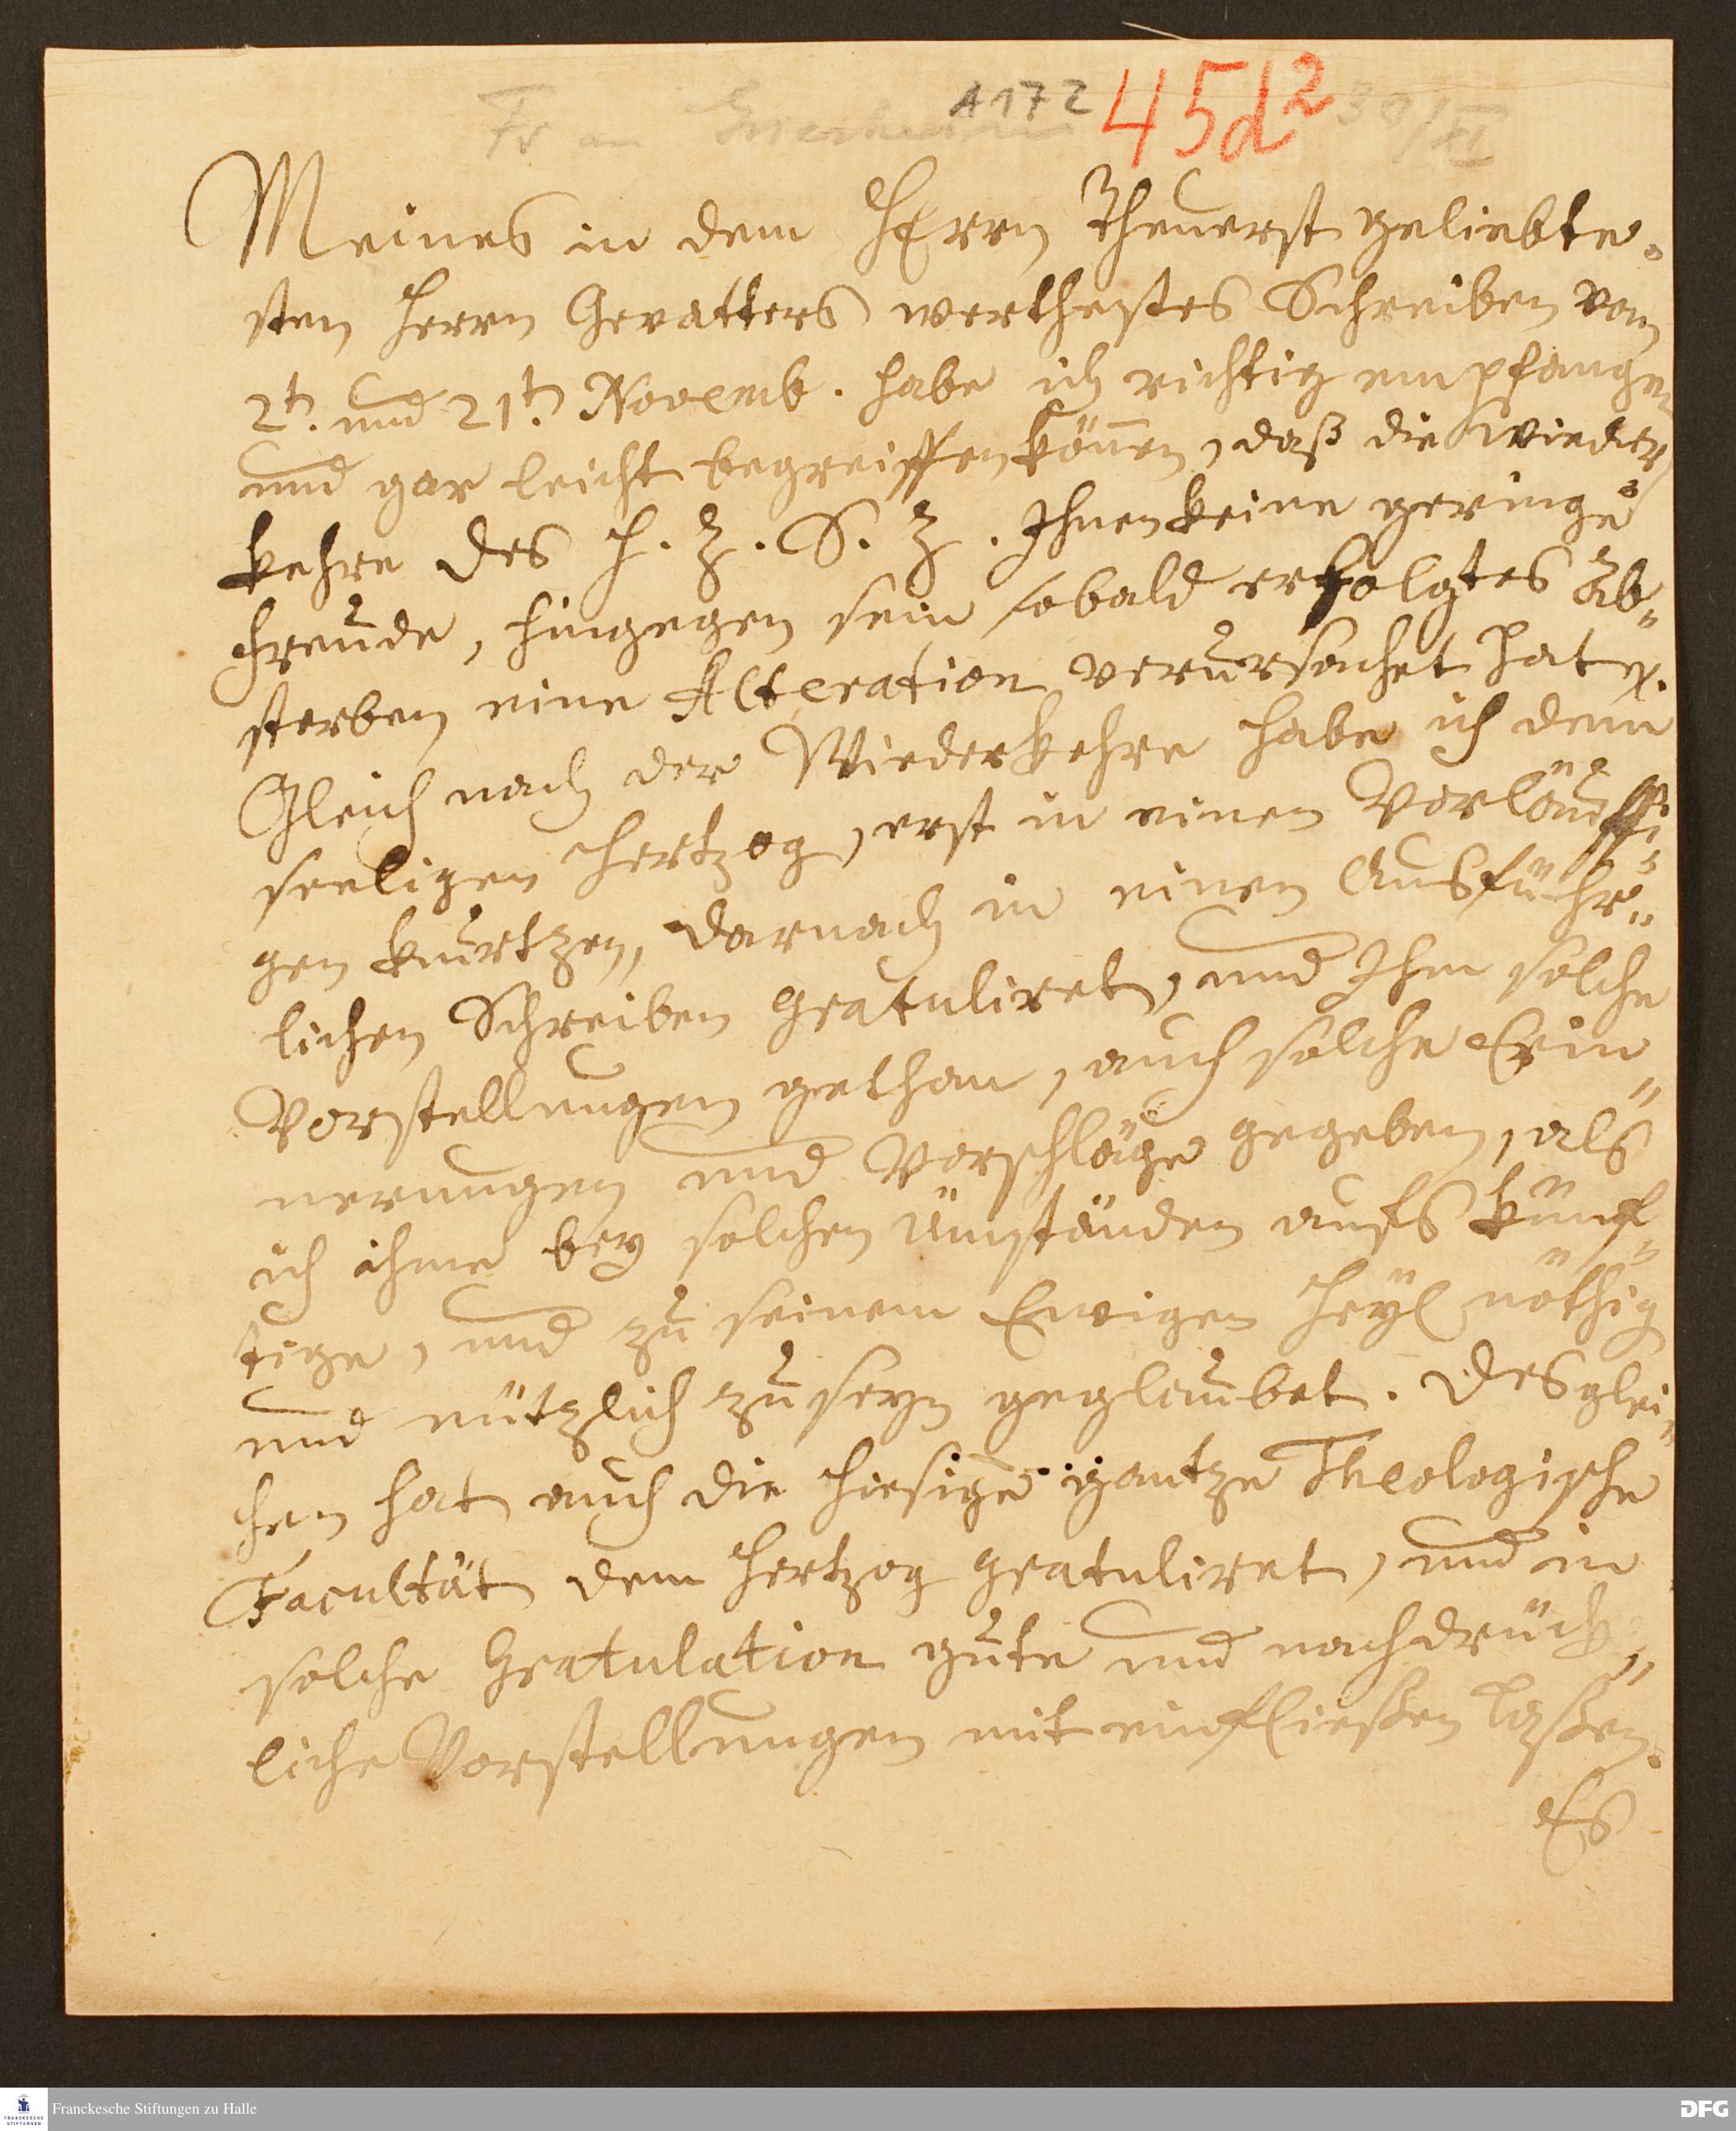 A172 45d2 30/XI
Fr an
Meines in dem HErrn Theuerst geliebte-
sten Herrn Gevatters werthestes Schreiben vom
2t. und 21t. Novemb. habe ich richtig empfangen
und gar leicht begreiffen können, daß die wieder
kehre des H. Z. S. Z. Ihnen keine geringe
Freude, hingegen sein sobald erfolgtes Ab-
sterben eine Alteration verursachet hat.
Gleich nach der Wiederkehre habe ich dem
seeligen Hertzog, erst in einen Vorläuffi-
gen kurtzen, darnach in einen Ausführ-
lichen Schreiben gratuliret, und Ihm solche
Vorstellungen gethan, auch solche Erin-
nerungen und Vorschläge gegeben, als
ich ihme bey solchen Umständen aufs künf-
tige, und zu seinem Ewigen Heyl nöthig
und nützlich zu seyn geglaubet. Desglei-
chen hat auch die hiesige gantze Theologische
Facultät dem Hertzog gratuliret, und in
solche Gratulation gute und nachdrück-
liche Vorstellungen mit einfließen laßen.
Es
FRANCKESCHE STIFTUNGEN
Franckesche Stiftungen zu Halle
DFG